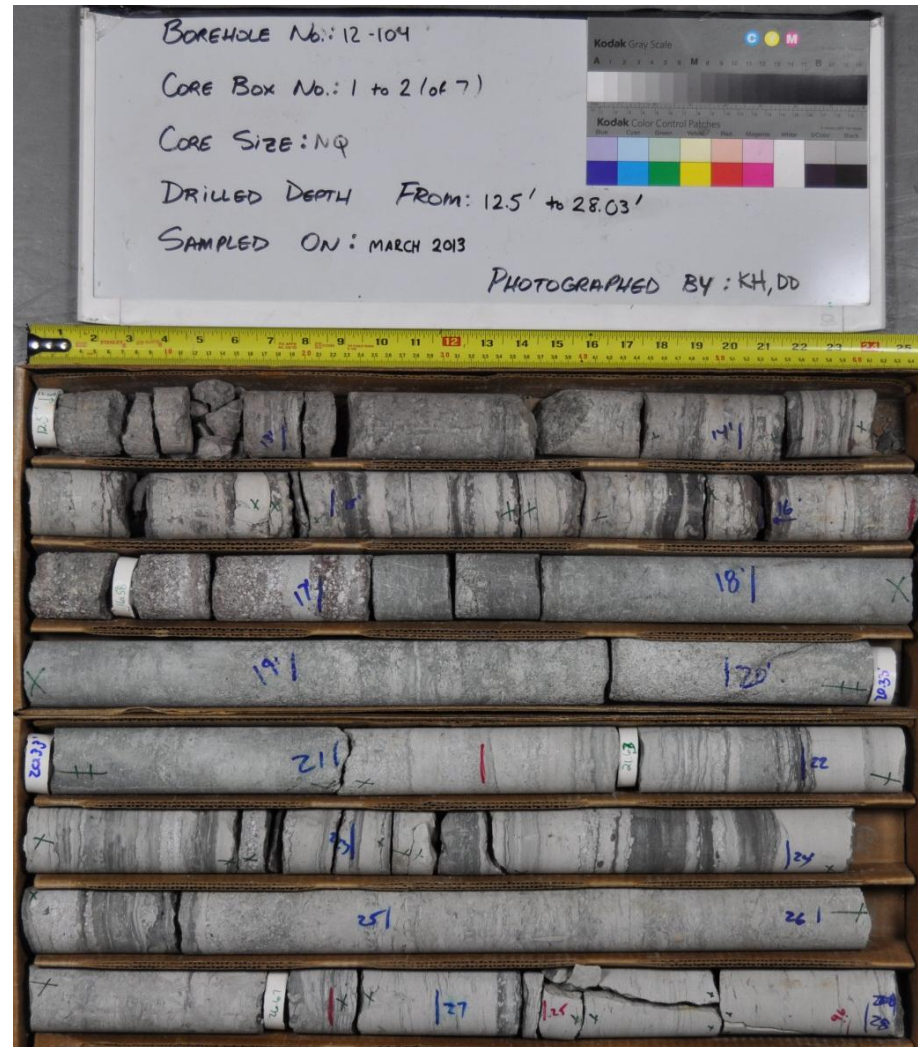 BOREHOLE No.: 12-104
CORE BOX No.: 1 to 2 (of 7)
CORE SIZE: NQ
DRILLED DEPTH FROM: 12.5' to 28.03'
SAMPLED ON: MARCH 2013
PHOTOGRAPHED BY: KH, DD
Kodak Gray Scale
C Y M
A 1 2 3 4 5 6 M 8 9 10 11 12 13 14 15 B 17 18 19
Kodak Color Control Patches
Blue Cyan Green Yellow Red Magenta White 3/Color Black
1 2 3 4 5 6 7 8 9 10 11 12 13 14 15 16 17 18 19 20 21 22 23 24 25
12.5' 13 14'
16'
16.58 17' 18' X
X 19' 20' 20.33'
20.33' 21 21.68 22
X 23 24
25 26
X 26.67 27 1.25 .96 28